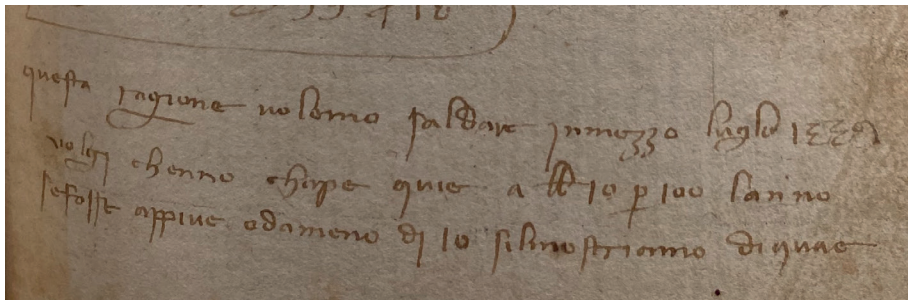 questa ragione volemo saldare jnmezzo luglo 133
volgi chenno chape quie a lb 10 p 100 lanno
sefosse appiue odameno di 10 silmostriamo diquae